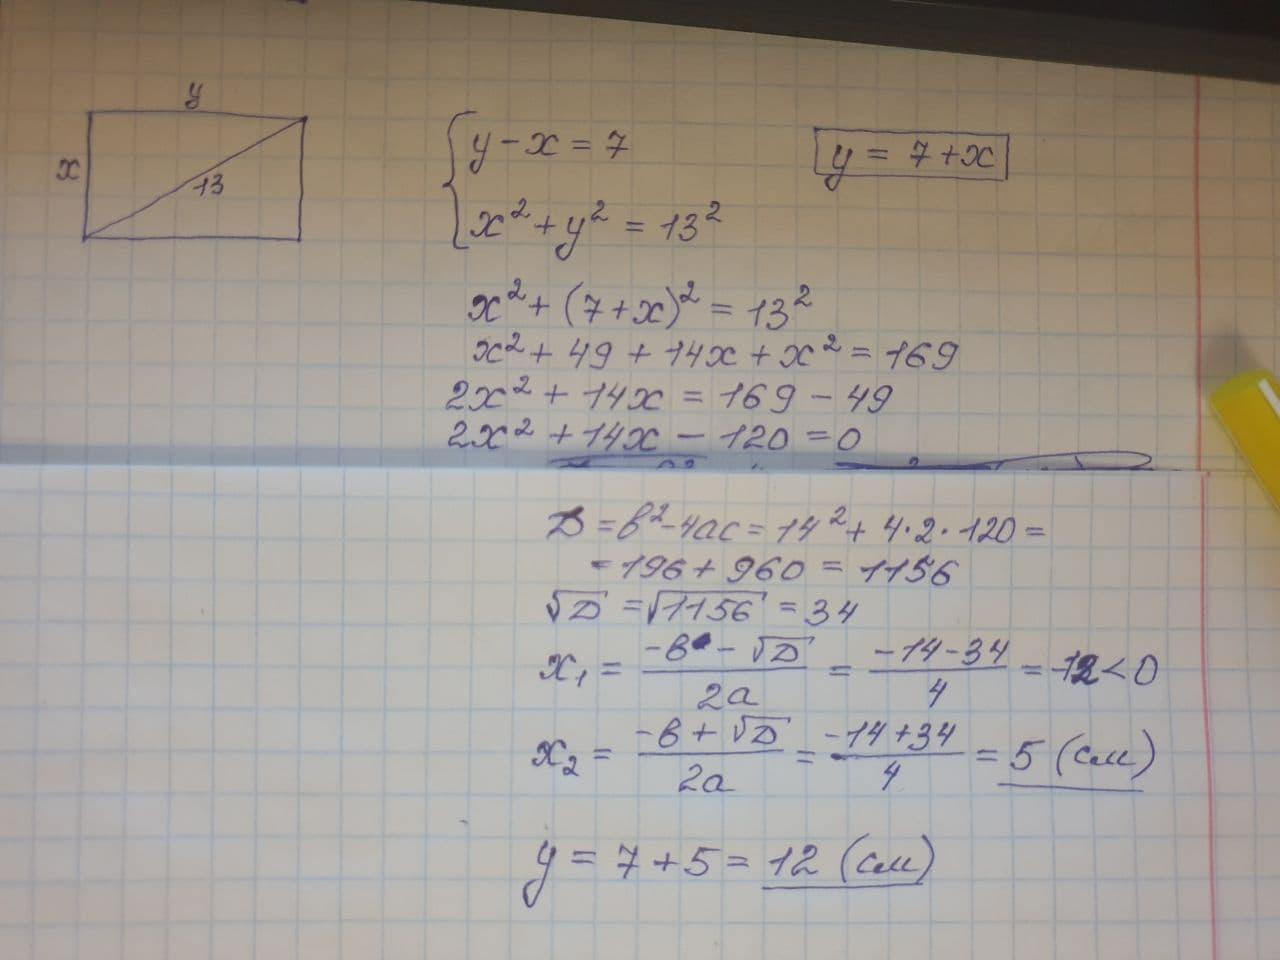 y
x
13
y - x = 7
y = 7 + x
x² + y² = 13²
x² + (7 + x)² = 13²
x² + 49 + 14x + x² = 169
2x² + 14x = 169 - 49
2x² + 14x - 120 = 0
D = b² - 4ac = 14² + 4·2·120 =
= 196 + 960 = 1156
√D = √1156 = 34
x₁ = (-в - √D)/2a = (-14 - 34)/4 = -12 < 0
x₂ = (-в + √D)/2a = (-14 + 34)/4 = 5 (см)
y = 7 + 5 = 12 (см)